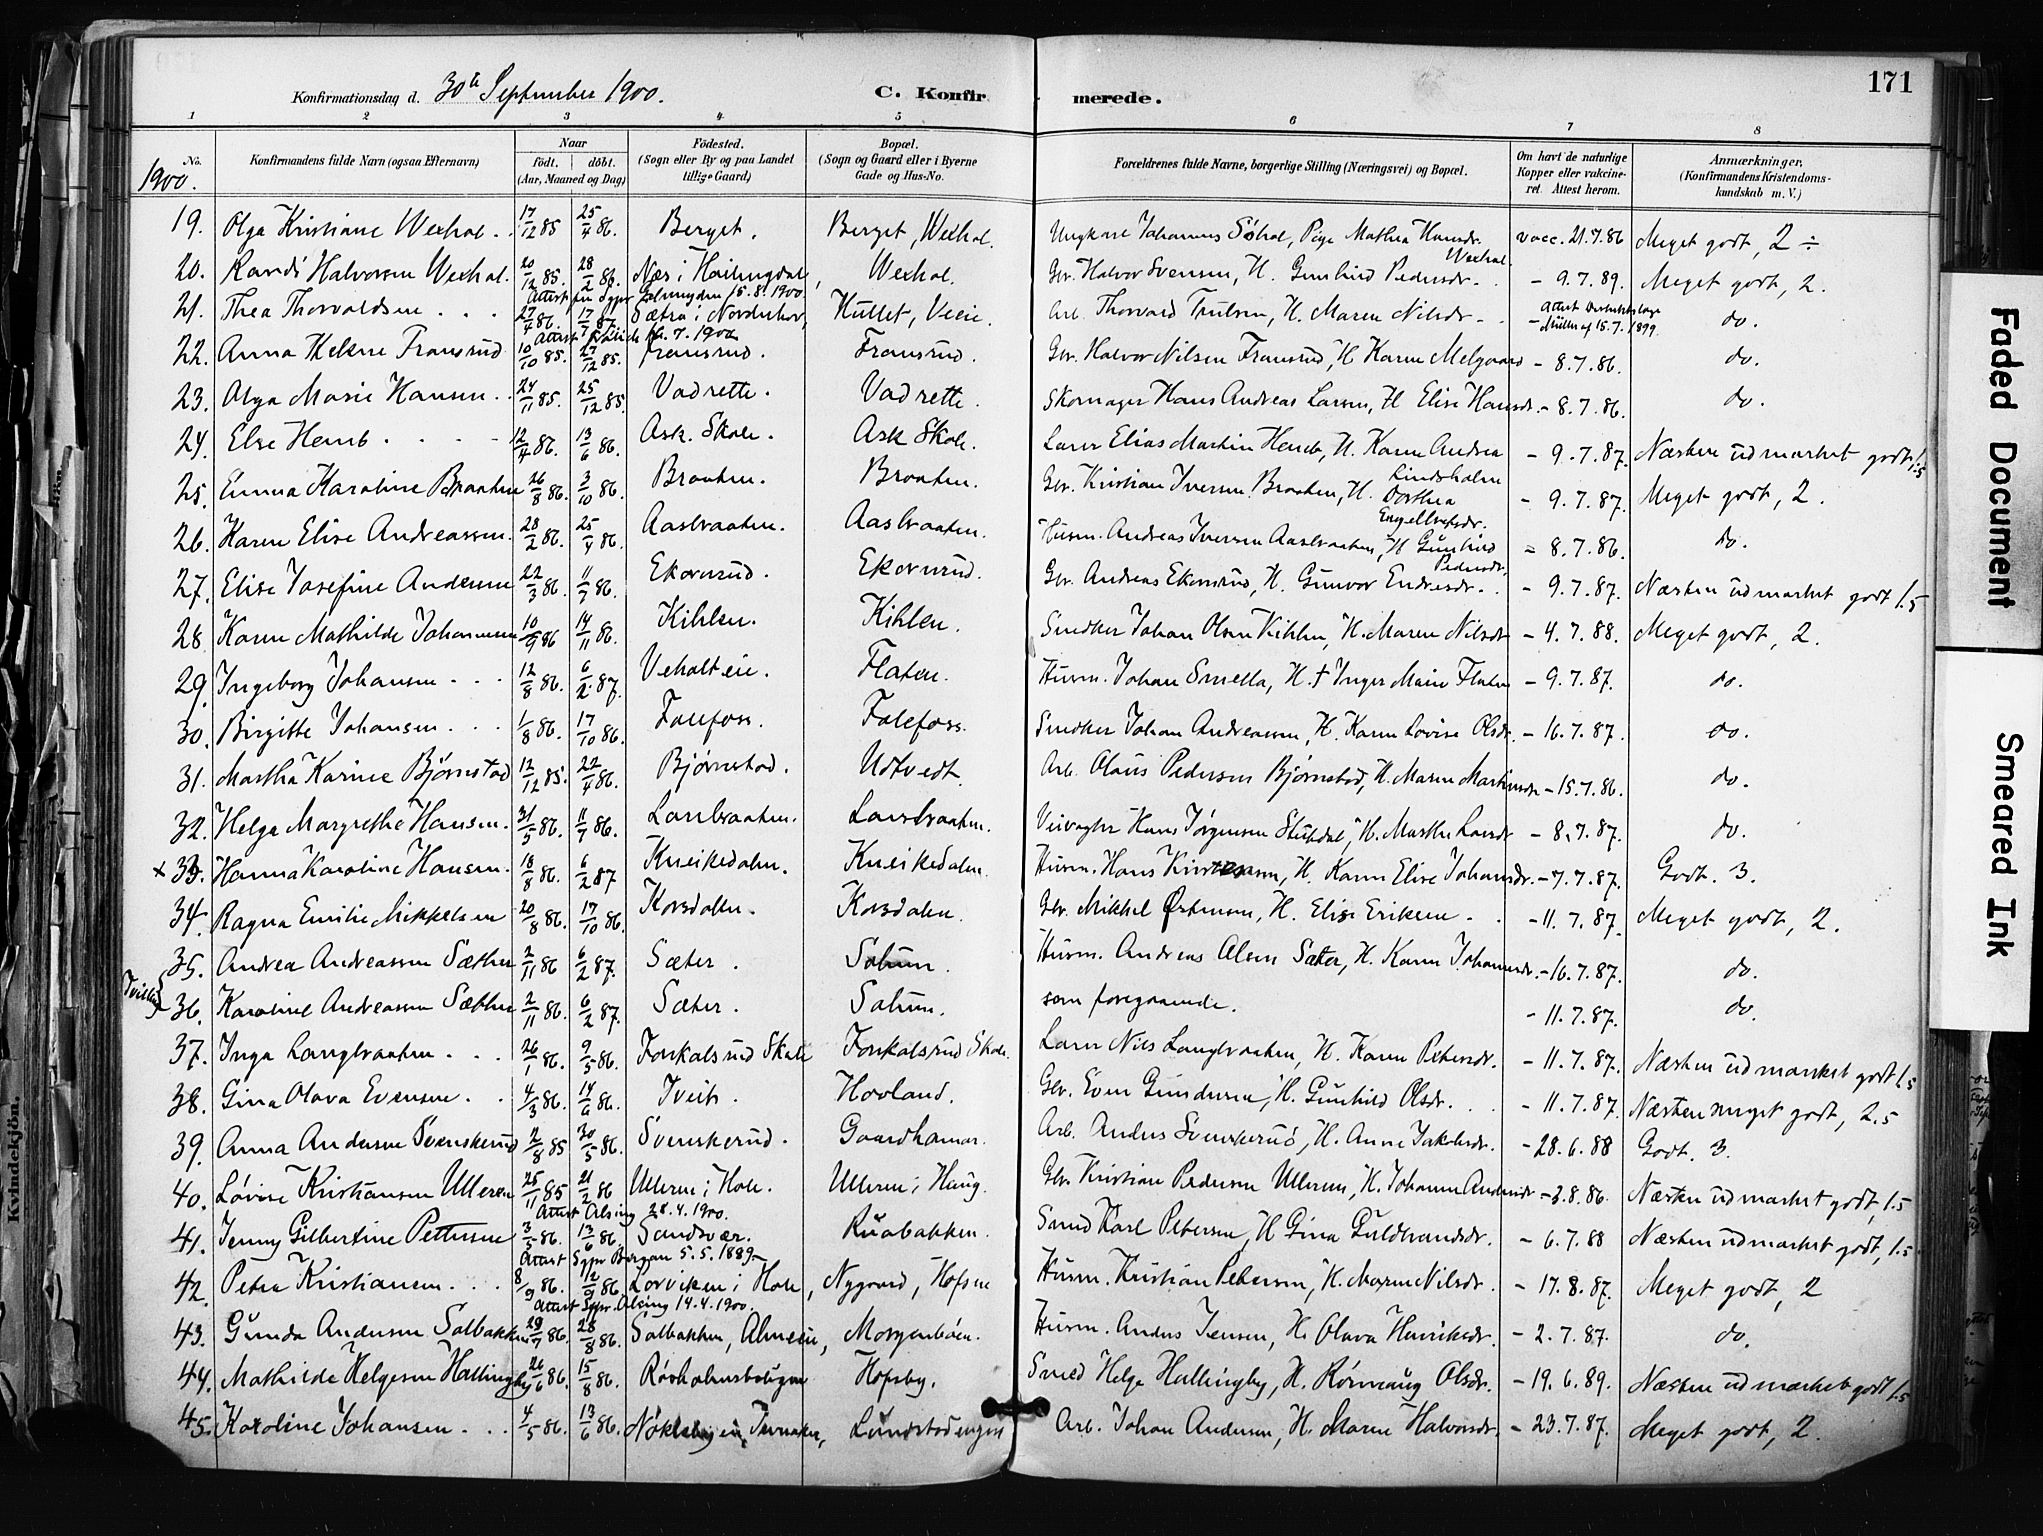 171
Konfirmationsdag d. 30te September 1900.
C. Konfirmerede.
1 2 3 4 5 6 7 8
No. Konfirmandens fulde Navn (ogsaa Efternavn) Naar født. døbt. (Aar, Maaned og Dag) Fødested. (Sogn eller By og paa Landet tillige Gaard) Bopæl. (Sogn og Gaard eller i Byerne Gade og Hus-No. Forældrenes fulde Navne, borgerlige Stilling (Næringsvei) og Bopæl. Om havt de naturlige Kopper eller vaccineret. Attest herom. Anmærkninger, (Konfirmandens Kristendomskundskab m. V.)
1900.
19. Olga Kristiane Wexhal. 17/12 85 25/4 86. Berget. Berget, Wexhal. Ungkarl Johannes Søhol, Pige Mathea Hansdr. Wexhal vacc. 21.7.86 Meget godt, 2 ÷
20. Randi Halvorsen Wexhal. 20/12 85. 28/2 86. Næs i Hallingdal, Wexhal. Gbr. Halvor Svensen, H. Gunhild Pedersdr. - 9.7.89. Meget godt, 2.
21. Thea Thorvaldsen 27/4 86. 17/7 87. Sætra i Norderhov, Hullet, Veie. Arb. Thorvard Trulsen, H. Maren Nilsdr. 15.7.1899. do.
22. Anna Helene Fransrud 10/10 85. 27/12 85. Fransrud. Fransrud. Gbr. Halvor Nilsen Fransrud, H Karen Melgaard - 8.7.86. do.
23. Olga Marie Hansen. 24/11 85. 25/12 85. Vadrette. Vadrette. Skomager Hans Andreas Larsen, H Elise Hansdr. - 8.7.86. do.
24. Else Hemb. 12/4 86. 13/6 86. Ask. Skole. Ask Skole. Lærer Elias Martin Hemb, H. Karen Andrea Lindsholm - 9.7.87. Næsten udmærket godt 1.5
25. Emma Karoline Braaten 26/8 86. 3/10 86. Braaten. Braaten. Gbr. Kristian Iversen Braaten, H. Dorthea Engelbretsdr. - 9.7.87. Meget godt, 2.
26. Karen Elise Andreassen. 28/2 86. 25/4 86. Aasbraaten. Aasbraaten. Husm. Andreas Iversen Aasbraaten, H Gunhild Pedersdr. - 8.7.86. do.
27. Elise Josefine Andersen 22/3 86. 11/7 86. Ekornrud. Ekornrud. Gbr. Andreas Ekornrud, H. Gunvor Endresdr. - 9.7.87. Næsten udmærket godt 1.5
28. Karen Mathilde Johannesen 10/9 86 14/11 86. Kihlen. Kihlen. Snedker Johan Olsen Kihlen, H. Maren Nilsdr - 4.7.88. Meget godt, 2.
29. Ingeborg Johansen 12/8 86. 6/2 87. Veholteie. Flaten. Husm. Johan Smella, H. † Inger Marie Flaten - 9.7.87. do.
30. Birgitte Johansen. 1/8 86. 17/10 86. Falefoss. Falefoss. Snedker Johan Andreassen, H. Karen Lovise Olsdr. - 16.7.87. do.
31. Martha Karine Bjørnstad 12/12 85. 22/4 86. Bjørnstad. Udtvedt. Arb. Olaus Pedersen Bjørnstad, H. Maren Martinsdr - 15.7.86. do.
32. Helga Margrethe Hansen. 31/5 86. 11/7 86. Larsbraaten. Larsbraaten. Veivogter Hans Jørgensen Stubdal, H. Marthe Larsdr - 8.7.87. do.
x 33. Hanna Karoline Hansen. 18/8 86. 6/2 87 Kneikedalen. Kneikedalen. Husm. Hans Kristensen, H. Karen Elise Johansdr. - 7.7.87. Godt. 3.
34. Ragna Emilie Mikkelsen 20/8 86. 17/10 86. Korsdalen. Korsdalen. Gbr. Mikkel Østensen, H. Elise Eriksen - 11.7.87. Meget godt, 2.
Tvilling
35. Andrea Andreassen Sæther 2/11 86 6/2 87. Sæter. Solum. Husm. Andreas Olsen Sæter, H. Karen Johannesdr. - 16.7.87. do.
36. Karoline Andreassen Sæther 2/11 86. 6/2 87. Sæter. Solum. som foregaaende. - 11.7.87. do.
37. Inga Langbraaten 26/1 86. 9/5 86. Fonkalsrud Skole Fonkalsrud Skole. Lærer Nils Langbraaten, H. Karen Petersdr. - 11.7.87. Næsten udmærket godt 1.5
38. Gina Olava Evensen. 4/3 86. 14/6 86. Tveit. Hovland. Gbr. Even Gundersen, H. Gunhild Olsdr. - 11.7.87. Næsten meget godt, 2.5
39. Anna Andersen Svenskerud 2/8 85 30/5 86. Svenskerud. Gaardhamar. Arb. Anders Svenskerud, H. Anne Jakobsdr. - 28.6.88 Godt. 3.
40. Lovise Kristiansen Ulleren 25/11 85 21/2 86 Ulleren i Hole. Ulleren i Haug. Gbr. Kristian Pedersen Ulleren, H. Johanne Andersdr - 3.8.86. Næsten udmærket godt, 1.5
Attest Alsing 28.4.1900.
41. Jenny Gilbertine Pettersen 3/5 86. 13/6 86. Sandsvær. Ruabakken. Smed Karl Petersen, H Gina Guldbrandsdr. - 6.7.88 Næsten udmærket godt, 1.5
Attest Sgpr Borgan 5.5.1889
42. Petra Kristiansen. 8/9 86. 12/9 86 Lorviken i Hole, Nygaard, Hofsen Husm. Kristian Petersen, H. Maren Nilsdr. - 17.8.87. Meget godt, 2
Attest Sgpr. Alsing 14.4.1900.
43. Gunda Andersen Solbakken 29/7 86. 28/8 86. Solbakken, Almeie, Morgenbøen. Husm. Anders Jensen, H. Olava Henriksdr. - 2.7.87. do.
44. Mathilde Helgesen Hallingby 26/6 86. 15/8 86. Røsholmstangen Hofsby. Smed Helge Hallingby, H. Rønnaug Olsdr. - 19.6.89. Næsten udmærket godt 1.5
45. Karoline Johansen. 4/5 86. 13/6 86. Jevnaker, Lundstadengen Arb. Johan Andersen, H. Maren Halvorsdr. - 23.7.87. Meget godt, 2.
Kvindekjön.
Faded Document
Smeared Ink